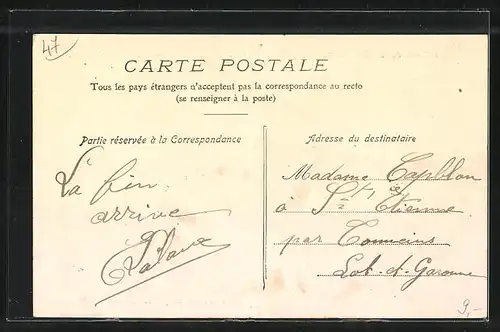 47
CARTE POSTALE
Tous les pays étrangers n'acceptent pas la correspondance au recto
(se renseigner à la poste)
Partie réservée à la Correspondance
La fin
arrive
Adresse du destinataire
Madame
à St Etienne
par
Lot-et-Garonne
9,-